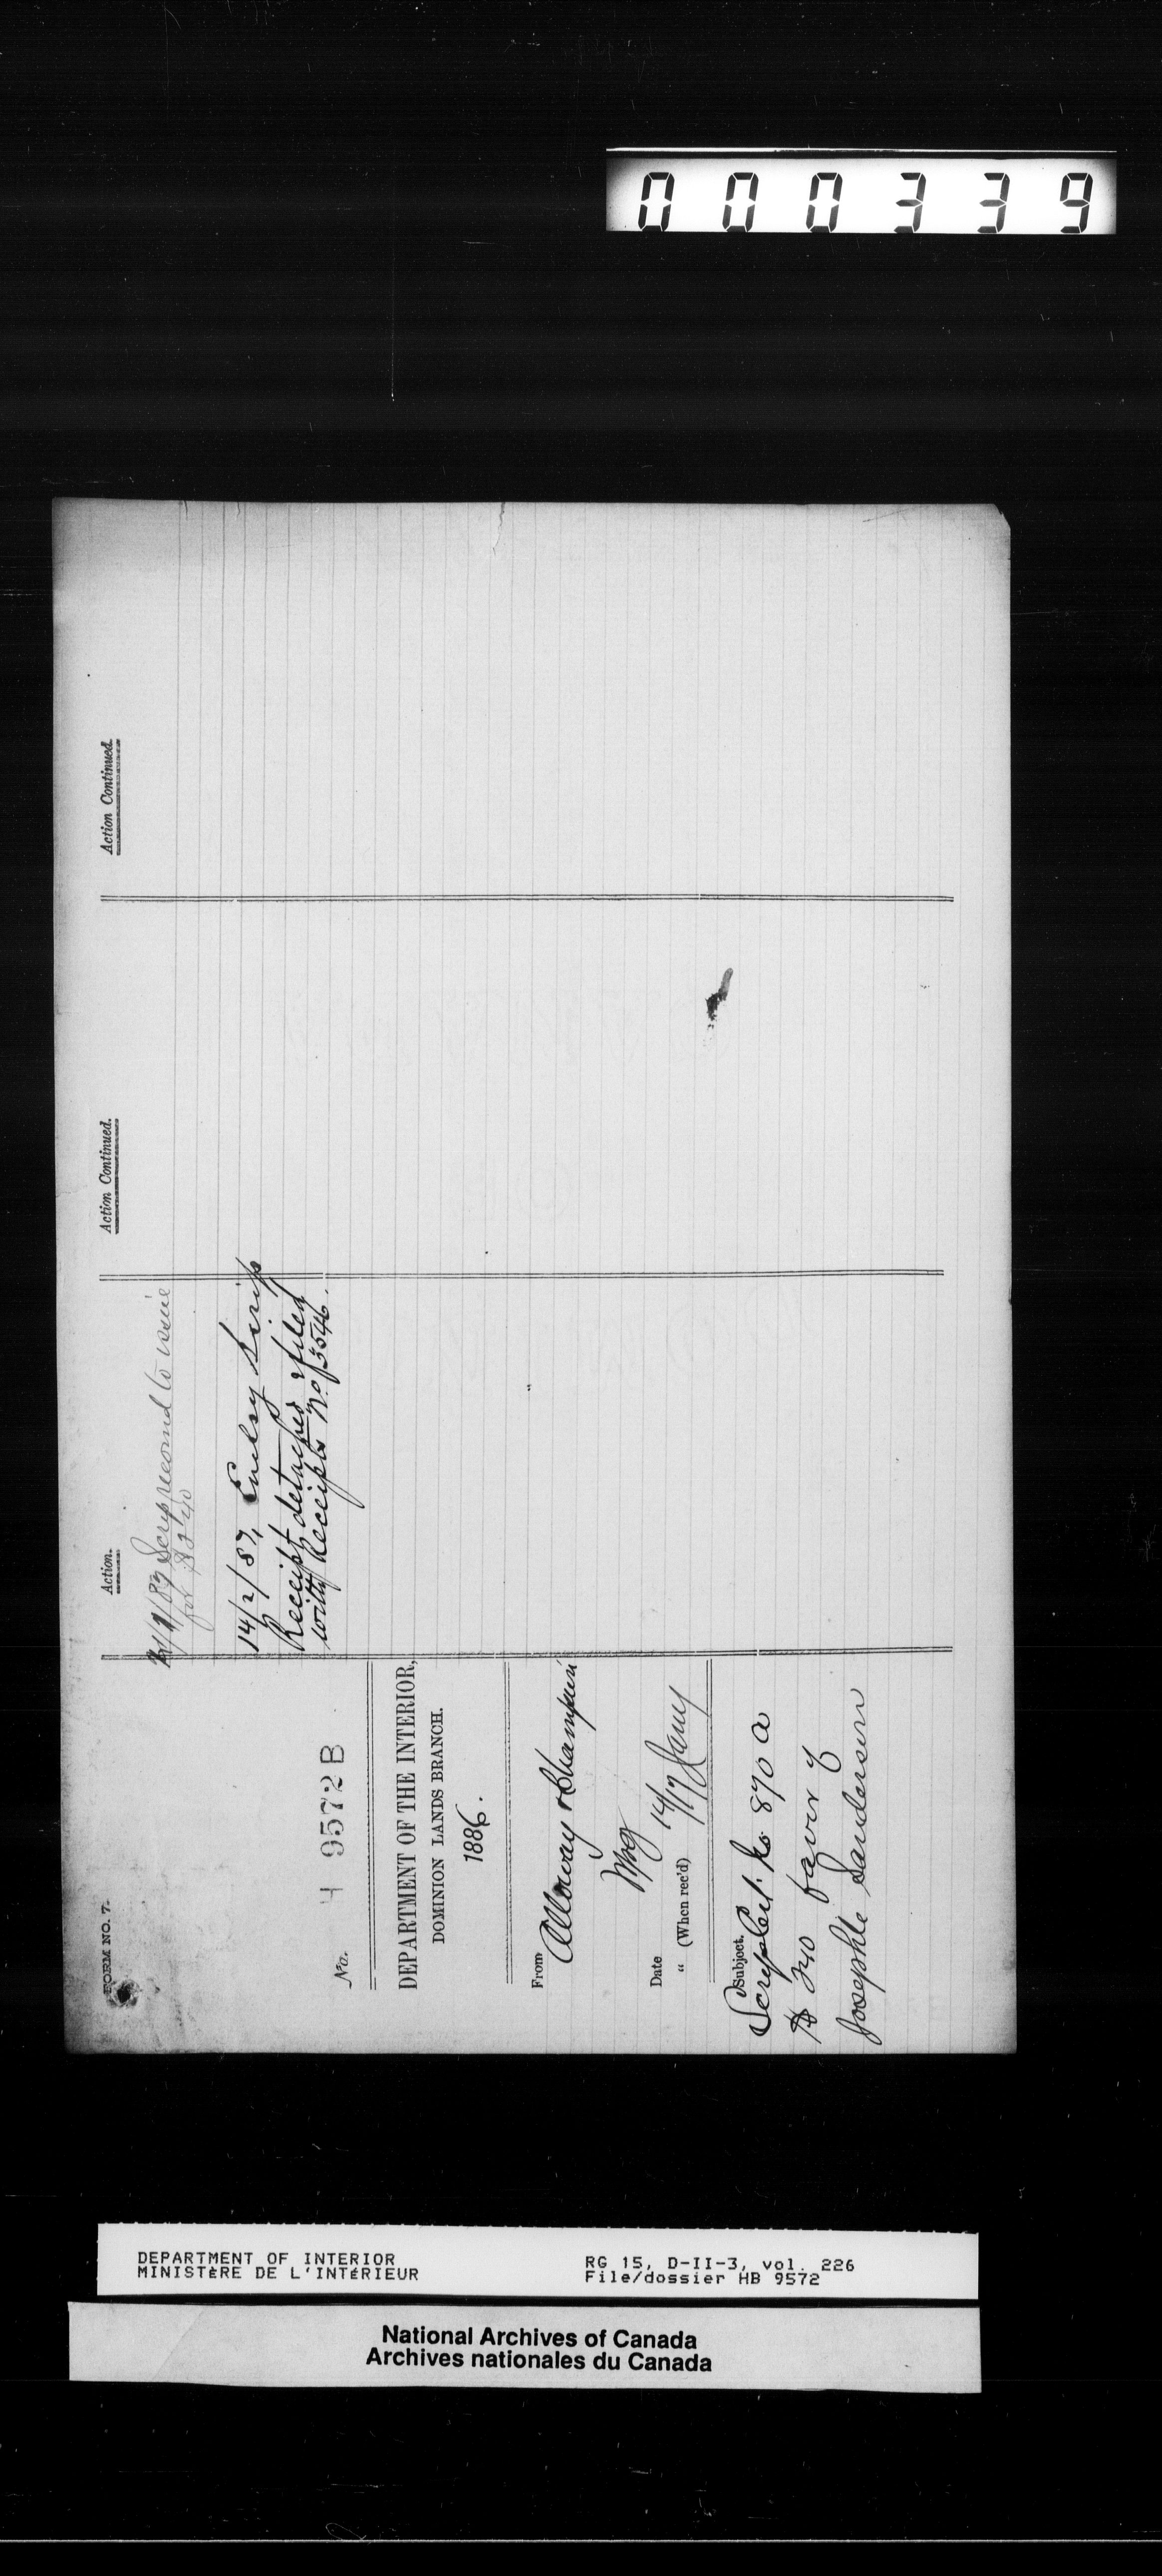 000339
FORM NO. 7.
No. H 9572 B
DEPARTMENT OF THE INTERIOR,
DOMINION LANDS BRANCH.
1886.
From Alloway & Champion
Wpg
Date 14
" (When rec'd) 17 Jany
Subject.
Scrip Cert. No. 870 a
$240 favor of
Josephte Sanderson
Action.
/87 Scrip recomd to issue
for $240
14/2/87, Enclsy Scrip
Receipt detached & filed
with Receipts No 3546.
Action Continued.
Action Continued.
DEPARTMENT OF INTERIOR
MINISTÈRE DE L'INTÉRIEUR
RG 15, D-II-3, vol. 226
File/dossier HB 9572
National Archives of Canada
Archives nationales du Canada